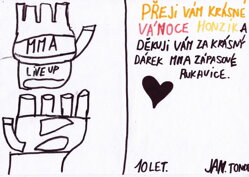 MMA
LiVE UP
PŘEJi VÁM KRÁSNÉ
VÁNOCE HONZÍK A
DĚKUJI VÁM ZA KRÁSNÝ
DÁREK MMA ZÁPASOVÉ
RUKAVICE.
10 LET.
JAN.